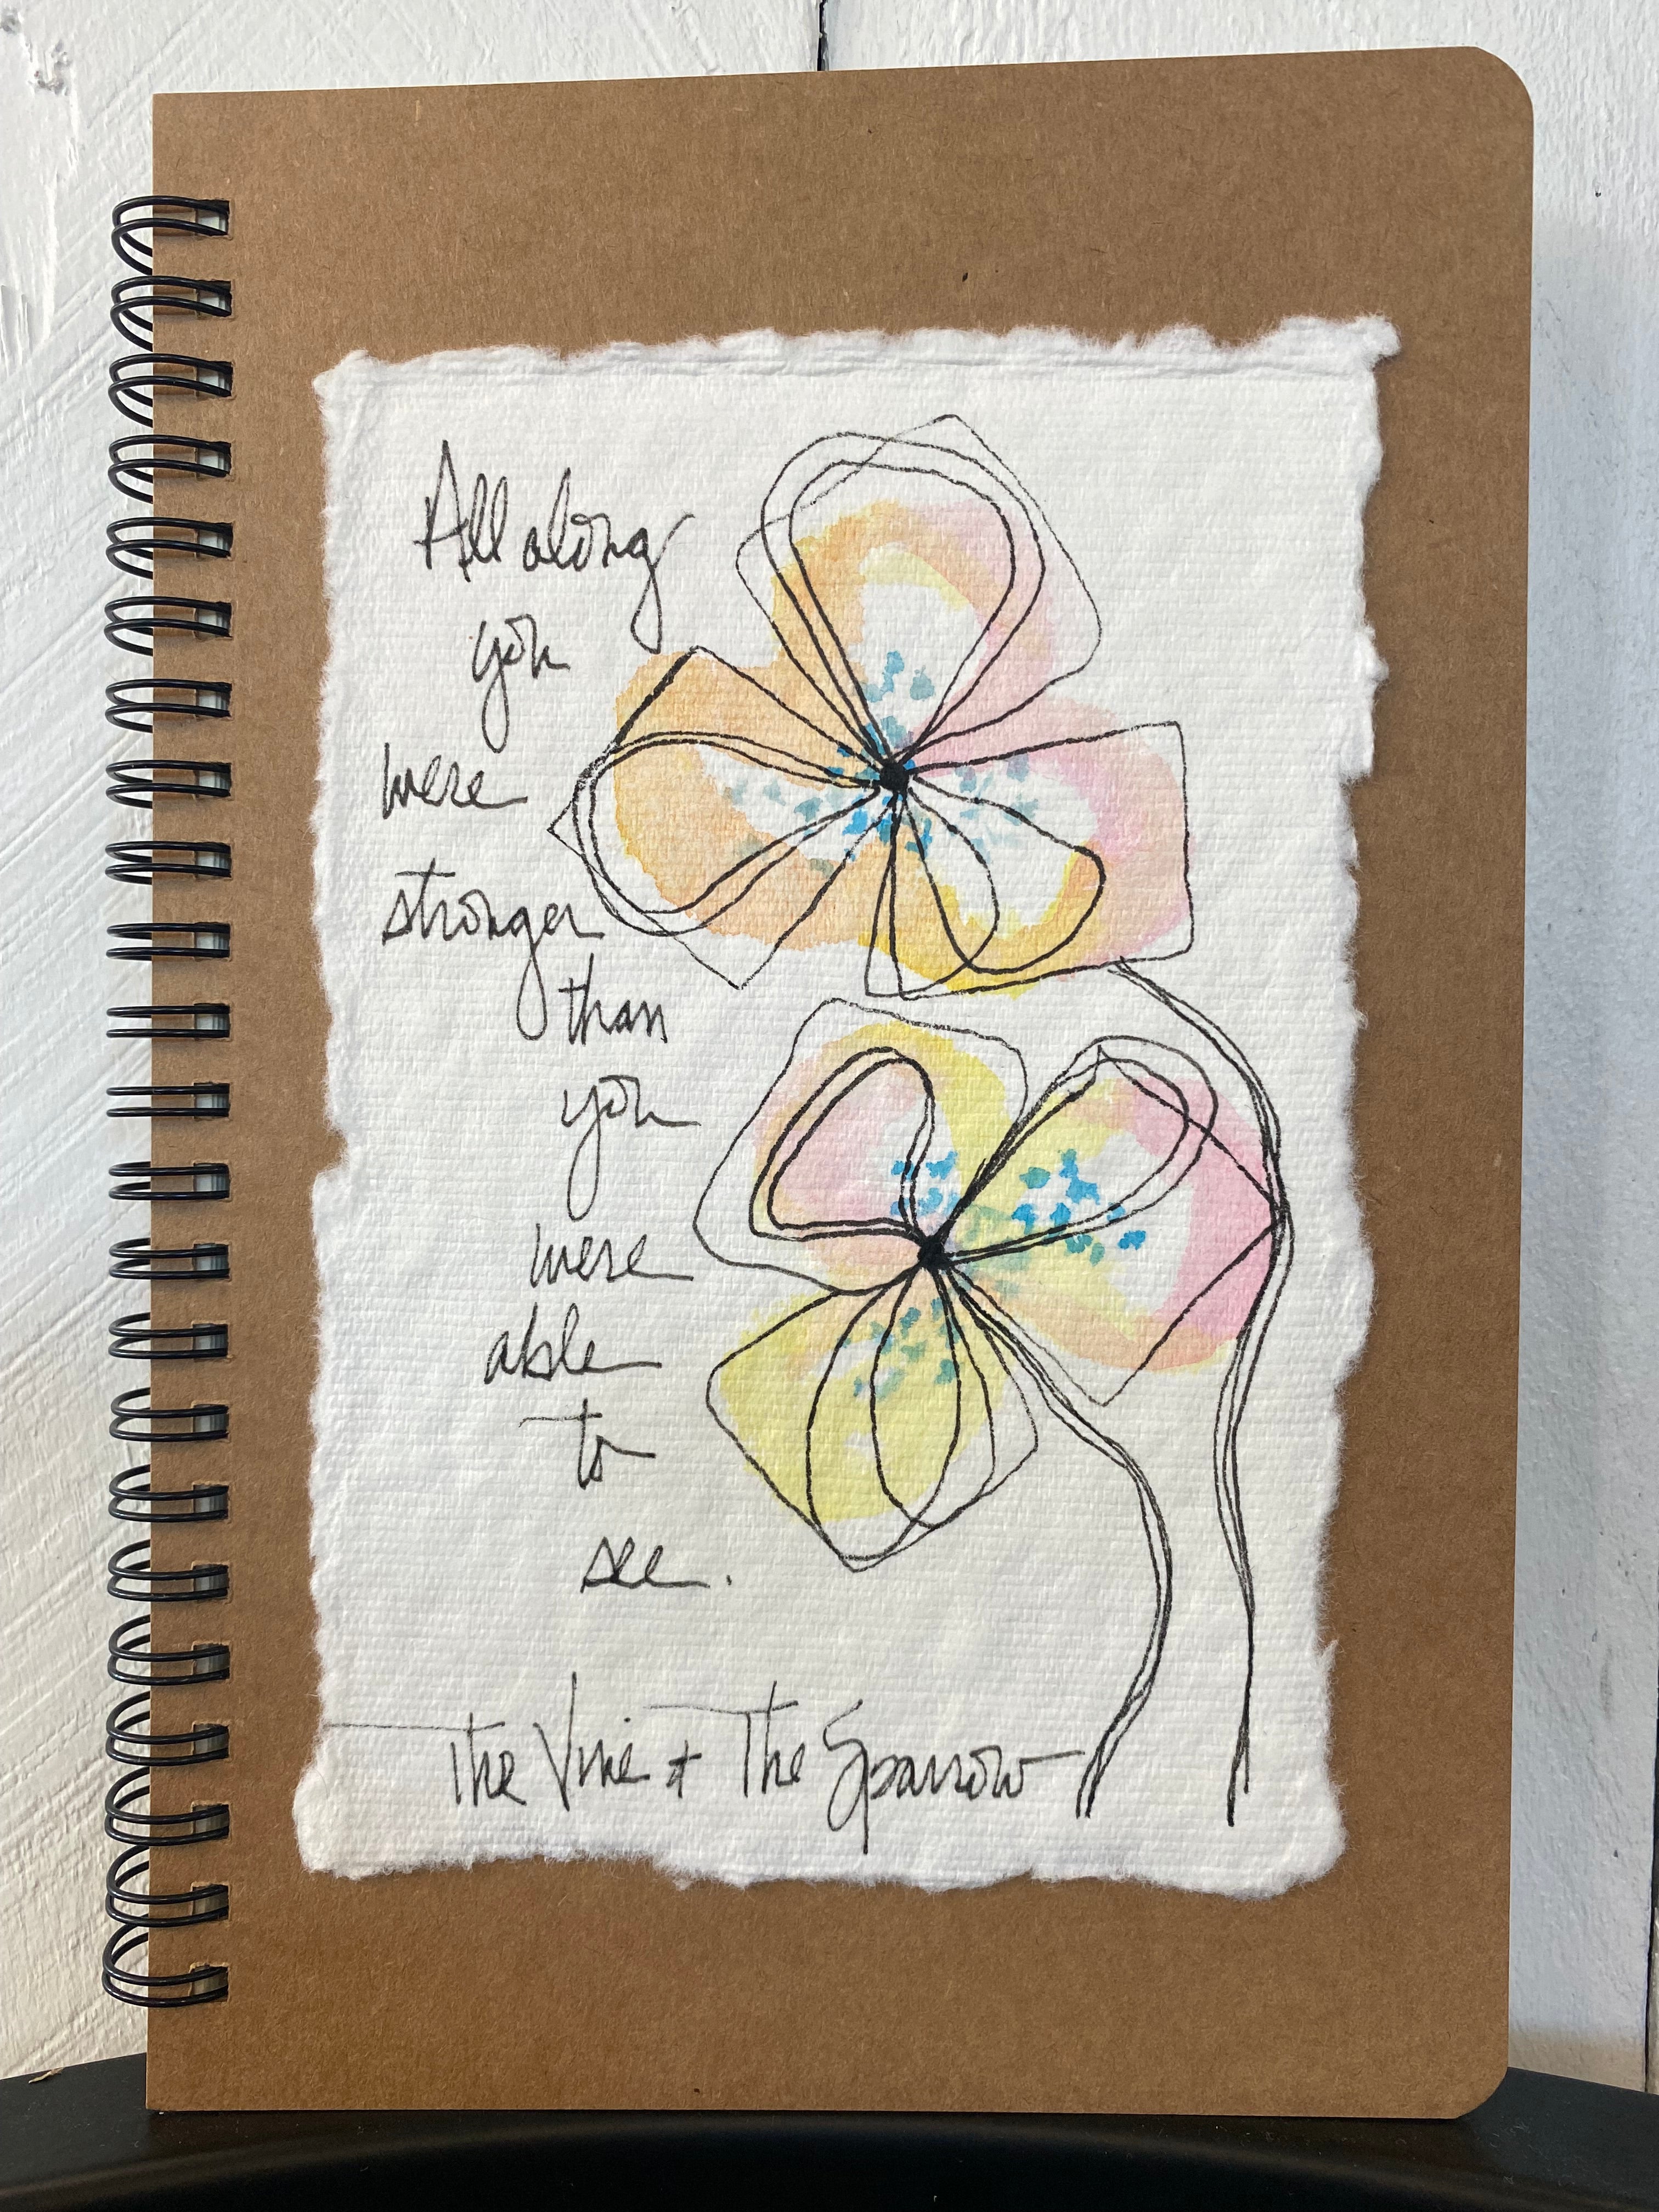 All along
you
were
stronger
than
you
were
able
to
see.
The Vine + The Sparrow